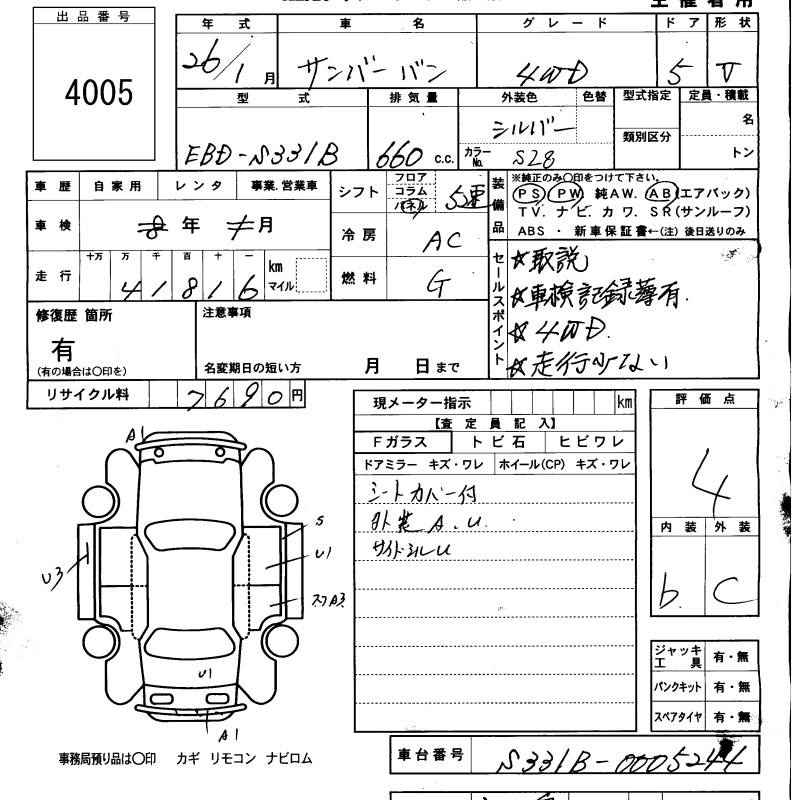 出品番号
4005
年式 車名 グレード ドア 形状
26/1月 サンバーバン 4WD 5 V
型式 排気量 外装色 色替 型式指定 定員・積載
EBD-S331B 660 c.c. シルバー 類別区分 名
カラーNo. S28 トン
車歴 自家用 レンタ 事業.営業車
車検 8年 月
走行 十万 万 千 百 十 一 km マイル
4 1 8 1 6
シフト フロア コラム パネル 5速
冷房 AC
燃料 G
装備品 ※純正のみ〇印をつけて下さい。
PS PW 純AW. AB(エアバック)
TV. ナビ. カワ. SR(サンルーフ)
ABS ・ 新車保証書←(注) 後日送りのみ
セールスポイント
☆取説
☆車検記録簿有.
☆4WD.
☆走行少ない
修復歴 箇所
有
(有の場合は〇印を)
注意事項
名変期日の短い方 月 日まで
リサイクル料 7690円
現メーター指示 km
【査定員記入】
Fガラス トビ石 ヒビワレ
ドアミラー キズ・ワレ ホイール(CP) キズ・ワレ
シートカバー付
外装A.U.
サイドシルU
評価点
4
内装 外装
b. C
A1
S
U1
U3
A3
U1
A1
ジャッキ工具 有・無
パンクキット 有・無
スペアタイヤ 有・無
事務局預り品は〇印 カギ リモコン ナビロム
車台番号 S331B-0005244